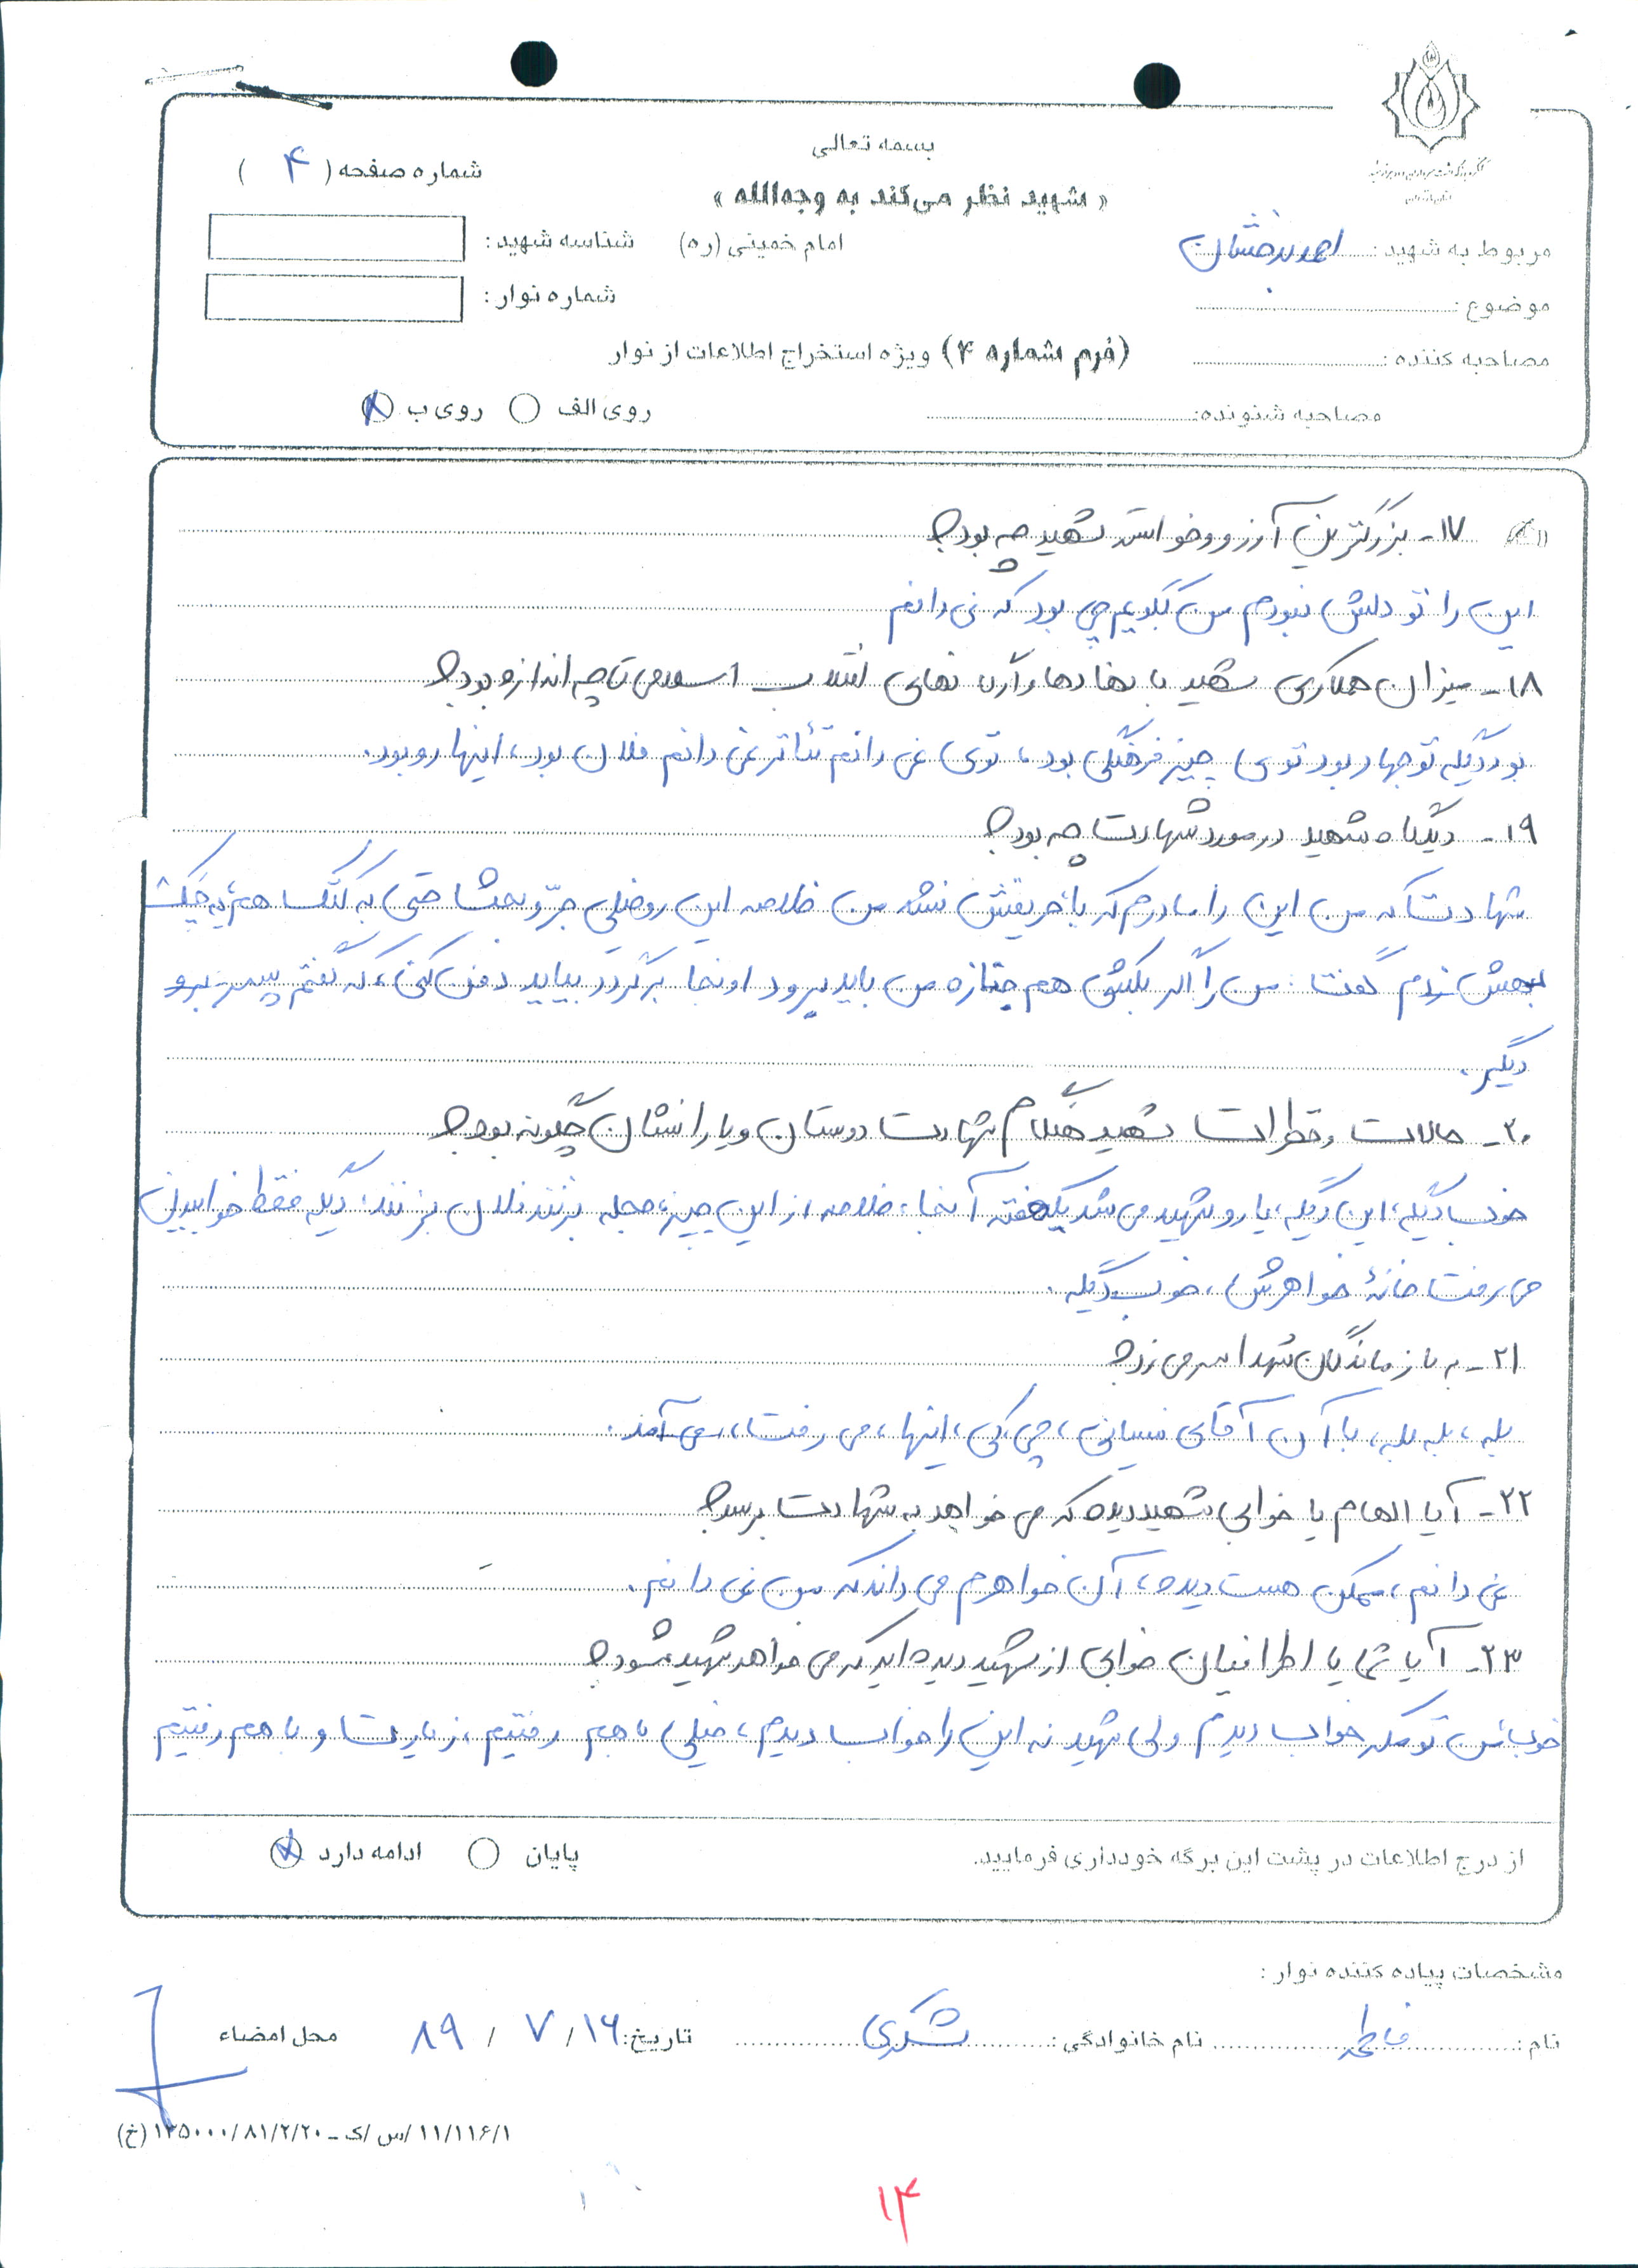 بسمه تعالی
« شهید نظر می‌کند به وجه‌الله »
امام خمینی (ره)
شماره صفحه ( ۴ )
شناسه شهید:
شماره نوار:
مربوط به شهید: احمد بدخشان
موضوع:
مصاحبه کننده:
(فرم شماره ۴) ویژه استخراج اطلاعات از نوار
مصاحبه شنونده:
روی الف روی ب
۱۷- بزرگترین آرزو و خواسته شهید چه بود؟
این را تو دلش نبودم من بگویم چی بود که نمی دانم
۱۸- میزان همکاری شهید با نهادها و ارگانهای انقلاب اسلامی تا چه اندازه بود؟
بود دیگه تو جهاد بود توی چیز فرهنگی بود، توی نمی دانم تئاتر نمی دانم فلان بود، اینها رو بود.
۱۹- دیدگاه شهید در مورد شهادت چه بود؟
شهادت که من این را مادرم که با حریفش نشد من خلاصه این رو خیلی جرّ و بحث حتی به کتک هم یه چک
بهش زدم گفت: من را اگر بکشی هم جنازه من باید برود اونجا برگردد بیاید دفن کنی، که گفتم پس برو
دیگر.
۲۰- حالات و خطرات شهید هنگام شهادت دوستان و یارانشان چگونه بود؟
خوب دیگه، این دیگه، یارو شهید می شد یک هفته آنجا، خلاصه از این چیز، حجله بزنند فلان بزنند، دیگه فقط خوابیدن
می رفت خانهٔ خواهرش، خوب دیگه.
۲۱- به بازماندگان شهدا سر می زد؟
بله، بله بله، با آن آقای، چی کی، اینها، می رفت، می آمد.
۲۲- آیا الهام یا خوابی شهید دیده که می خواهد به شهادت برسد؟
نمی دانم، ممکن هست دیده، آن خواهرم می داند که من نمی دانم.
۲۳- آیا شما یا اطرافیان خوابی از شهید دیده اید که می خواهد شهید شود؟
خوب من تو مکه خواب دیدم ولی شهید نه این را خواب دیدم، خیلی با هم رفتیم، زیارت و با هم رفتیم
از درج اطلاعات در پشت این برگه خودداری فرمایید.
پایان ادامه دارد
مشخصات پیاده کننده نوار:
نام: فاطمه نام خانوادگی: شکری تاریخ: ۱۶/ ۷ / ۸۹ محل امضاء
۱۱/۱۱۶/۱/س/ک-۱۳۵۰۰۰/۸۱/۲/۲۰ (خ)
۱۴